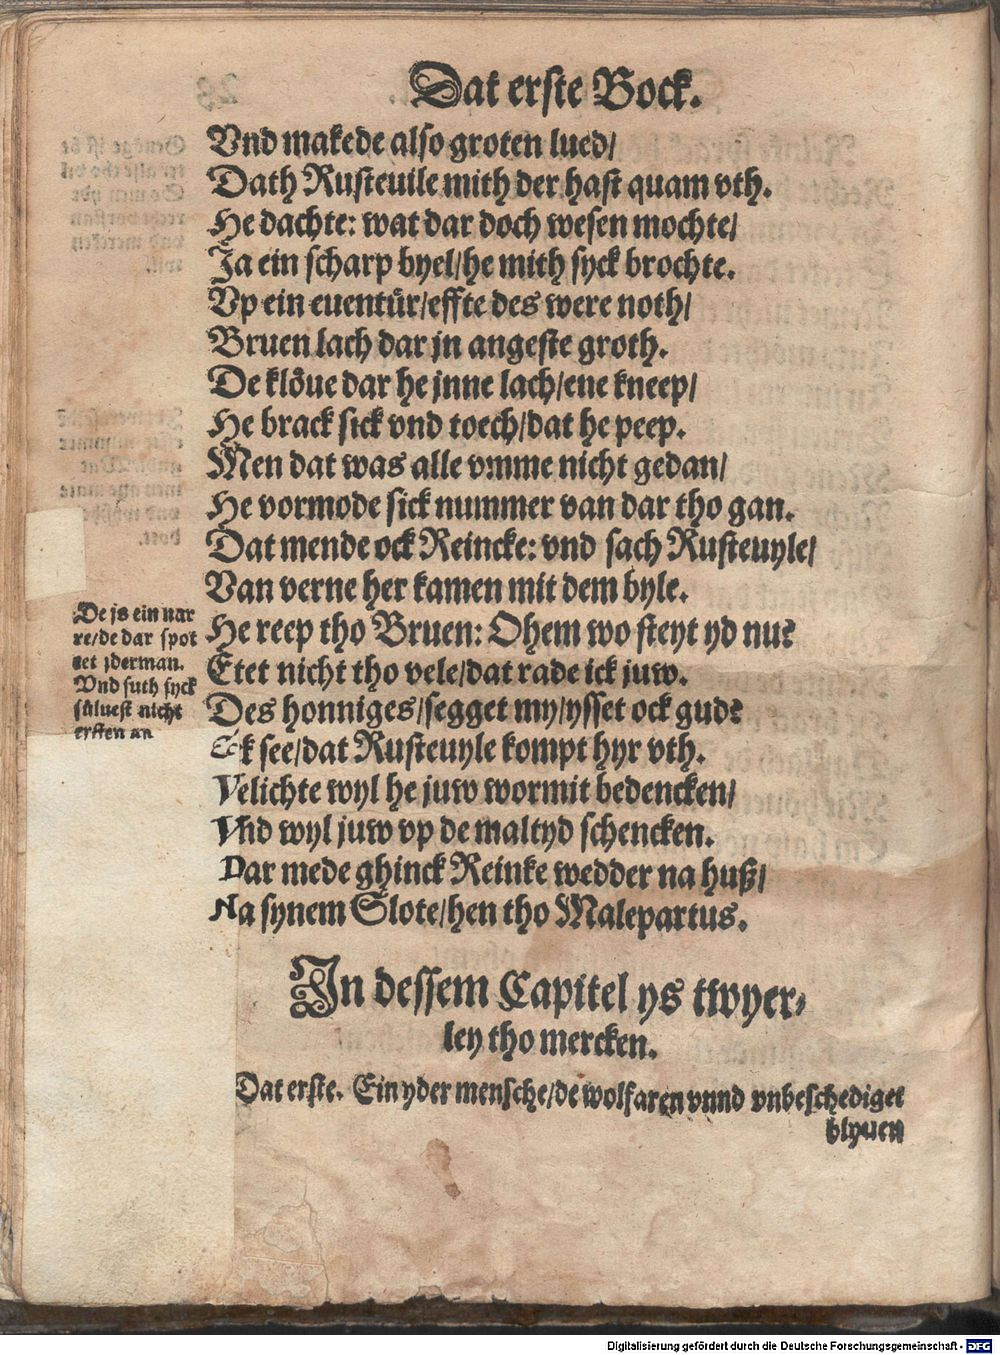 Dat erste Bock.
Vnd makede also groten lued/
Dath Rusteuile mith der hast quam vth.
He dachte: wat dar doch wesen mochte/
Ja ein scharp byel/he mith syck brochte.
Vp ein euentür/effte des were noth/
Bruen lach dar jn angeste groth.
De klöue dar he jnne lach/ene kneep/
He brack sick vnd toech/dat he peep.
Men dat was alle vmme nicht gedan/
He vormode sick nummer van dar tho gan.
Dat mende ock Reincke: vnd sach Rusteuyle/
Van verne her kamen mit dem byle.
He reep tho Bruen: Ohem wo steyt yd nu?
Etet nicht tho vele/dat rade ick juw.
Des honniges/segget my/ysset ock gud?
Eck see/dat Rusteuyle kompt hyr vth.
Velichte wyl he juw wormit bedencken/
Vnd wyl juw vp de maltyd schencken.
Dar mede ghinck Reinke wedder na huß/
Na synem Slote/hen tho Malepartus.
De js ein nar
re/de dar spot
tet yderman.
Vnd suth syck
süluest nicht
ersten an
In dessem Capitel ys twyer-
ley tho mercken.
Dat erste. Ein yder mensche/de wolfaren vnnd vnbeschediget
blyuen
Digitalisierung gefördert durch die Deutsche Forschungsgemeinschaft - DFG